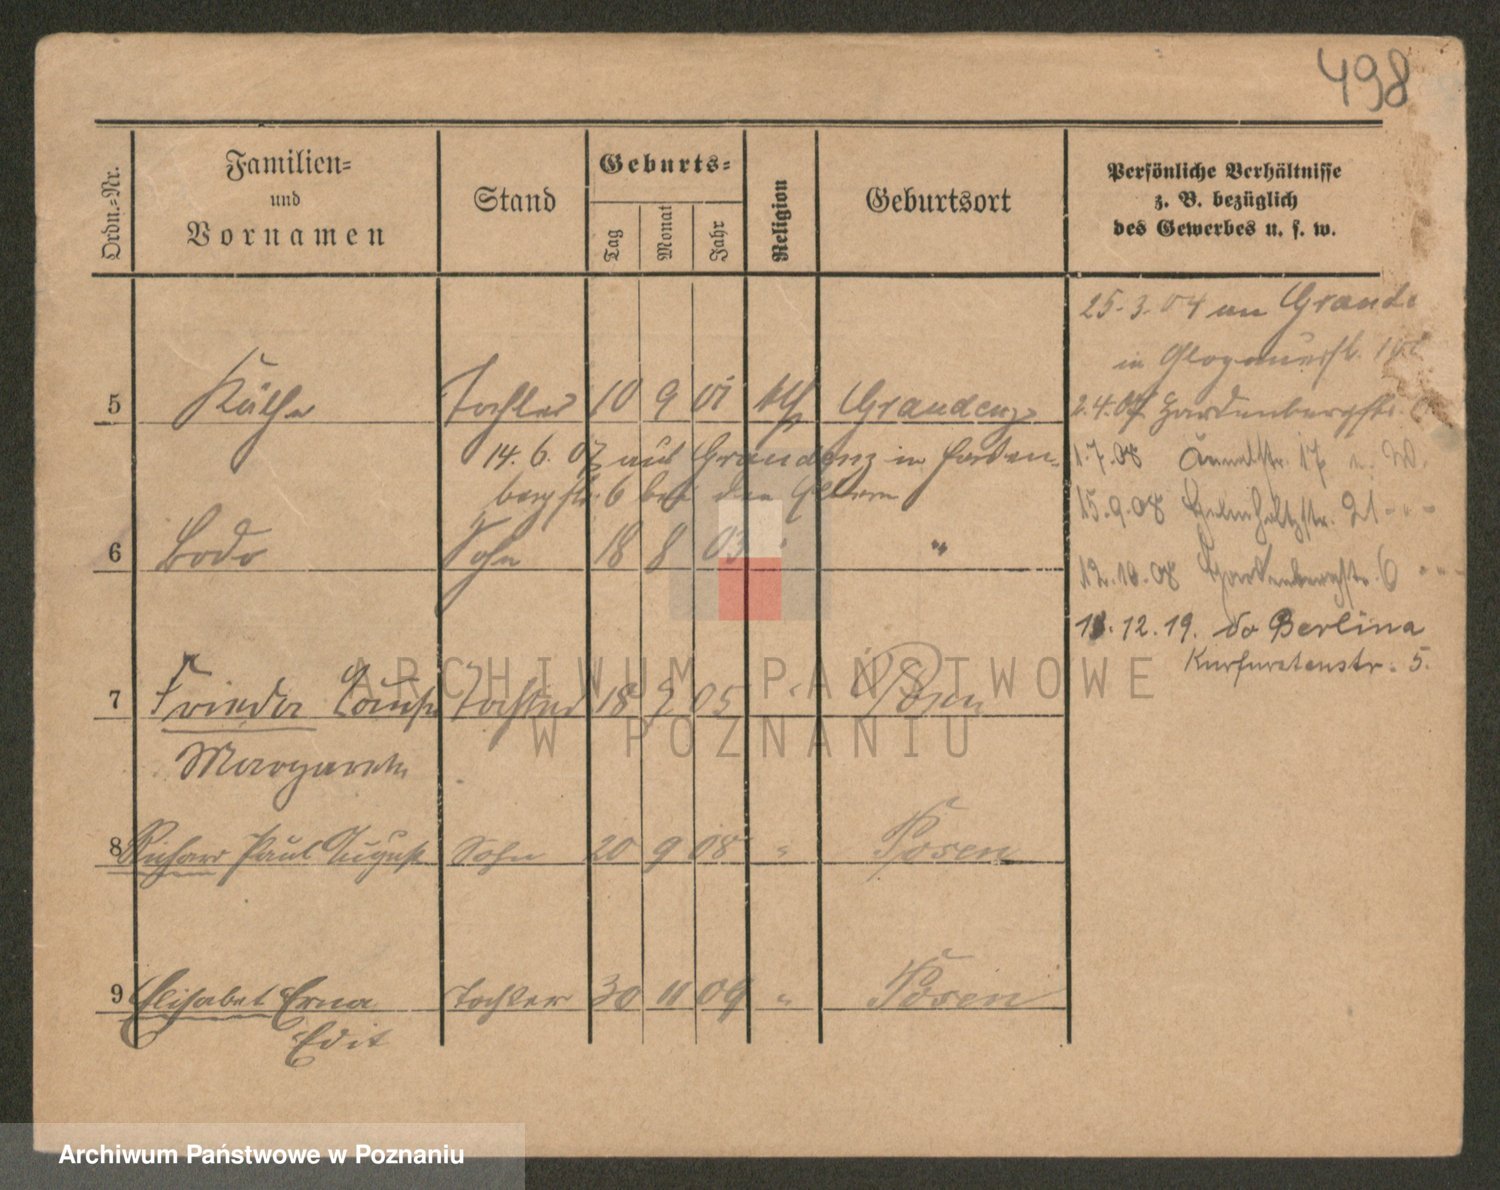 498
Ordn.-Nr.
Familien- und Vornamen
Stand
Geburts-
Tag
Monat
Jahr
Religion
Geburtsort
Persönliche Verhältnisse
z. B. bezüglich
des Gewerbes u. s. w.
25.3.04 Graude
in Glogauerstr.
5 Käthe Tochter 10 9 01 Graudenz
2.4.07 Hardenbergstr.
14. 6. 07 aus Graudenz in Harden-
bergstr. 6 bei den Eltern
1.7.08 17
15.9.08 Helmholtzstr. 21 " " "
6 Bodo Sohn 18 8 03 " "
12.10.08 Hardenbergstr. 6 " " "
12.19. do Berlina
Kurfurstenstr. 5.
7 Frieda Louise Tochter 18 9 05 " Posen
Margarete
8 Richard Paul August Sohn 20 9 08 " Posen
9 Elisabet Erna Tochter 30 11 09 " Posen
Edit
ARCHIWUM PAŃSTWOWE
W POZNANIU
Archiwum Państwowe w Poznaniu